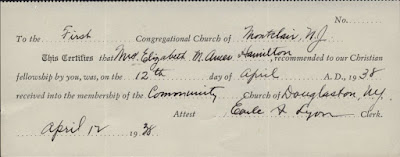 No.
To the First Congregational Church of Montclair, N.J.
This Certifies that Mrs. Elizabeth M. Hamilton, recommended to our Christian
fellowship by you, was, on the 12th day of April A. D., 1938
received into the membership of the Community Church of Douglaston, N.Y.
Attest Earle F Lyon Clerk.
April 12 1938